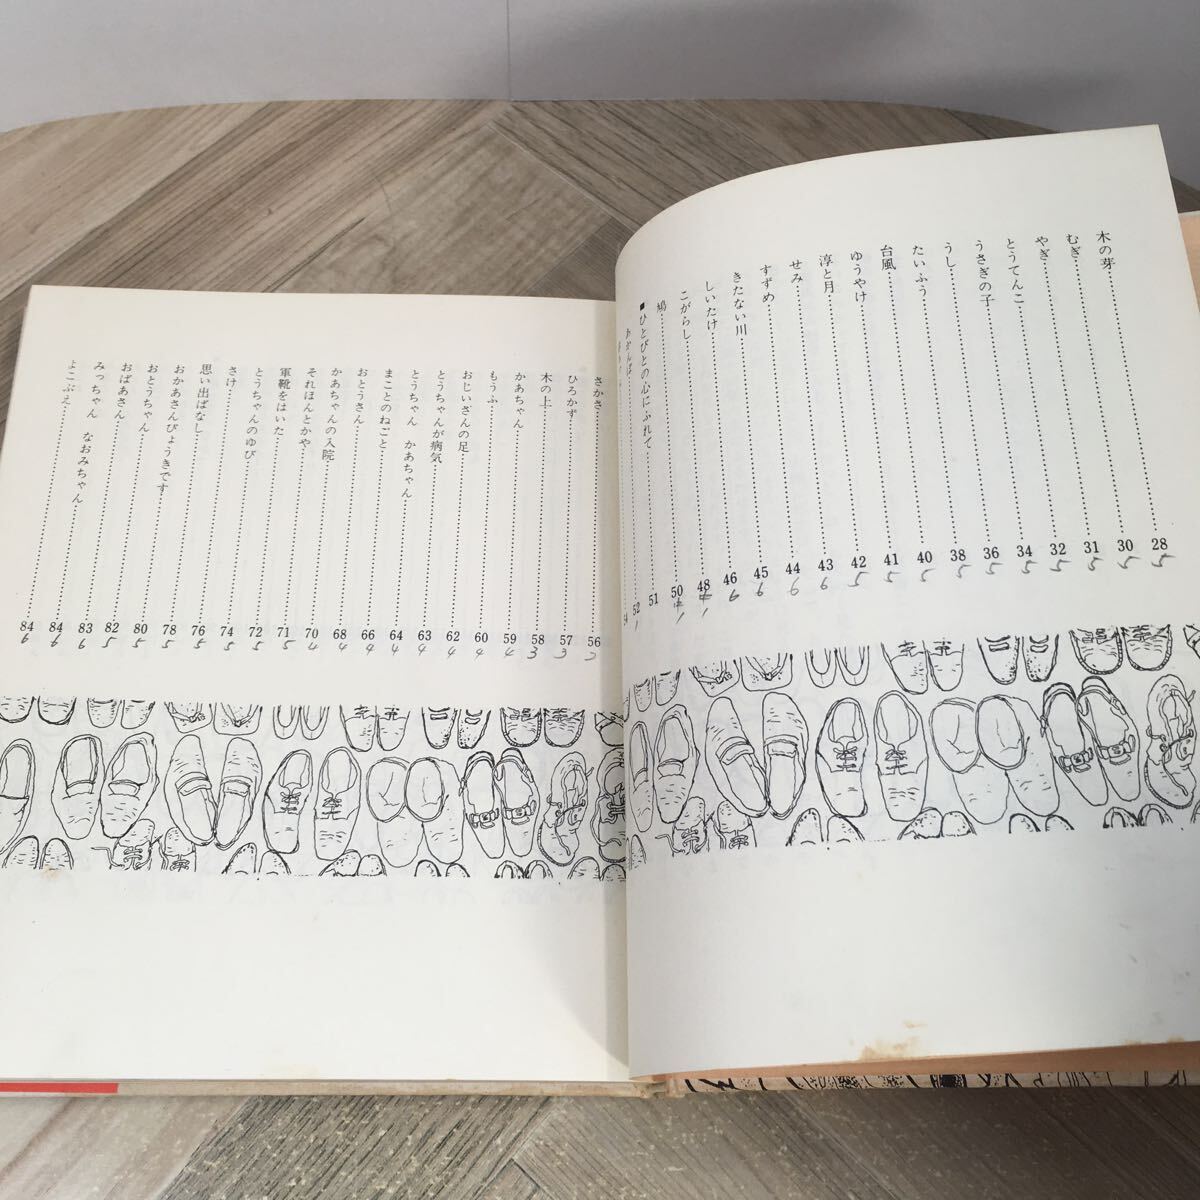 木の芽……28 5
むぎ……30 5
やぎ……31 5
とうてんこ……32 5
うさぎの子……34 5
うし……36 5
たいふう……38 5
台風……40 5
ゆうやけ……41 5
淳と月……42 5
せみ……43 6
すずめ……44 6
きたない川……45 6
しいたけ……46 6
こがらし……48 1
鳩……50 1
■ひとびとの心にふれて……51
あかんぼ……52 1
54
さかさ……56 3
ひろかず……57 3
木の上……58 3
かあちゃん……59 4
もうふ……60 4
おじいさんの足……62 4
とうちゃんが病気……63 4
とうちゃん かあちゃん……64 4
まことのねごと……66 4
おとうさん……68 4
かあちゃんの入院……70 4
それほんとかや……71 5
軍靴をはいた……72 5
とうちゃんのゆび……74 5
さけ……76 5
思い出ばなし……78 5
おかあさんびょうきです……80 5
おとうちゃん……82 5
おばあさん……83 6
みっちゃん なおみちゃん……84 6
よこぶえ……84 6